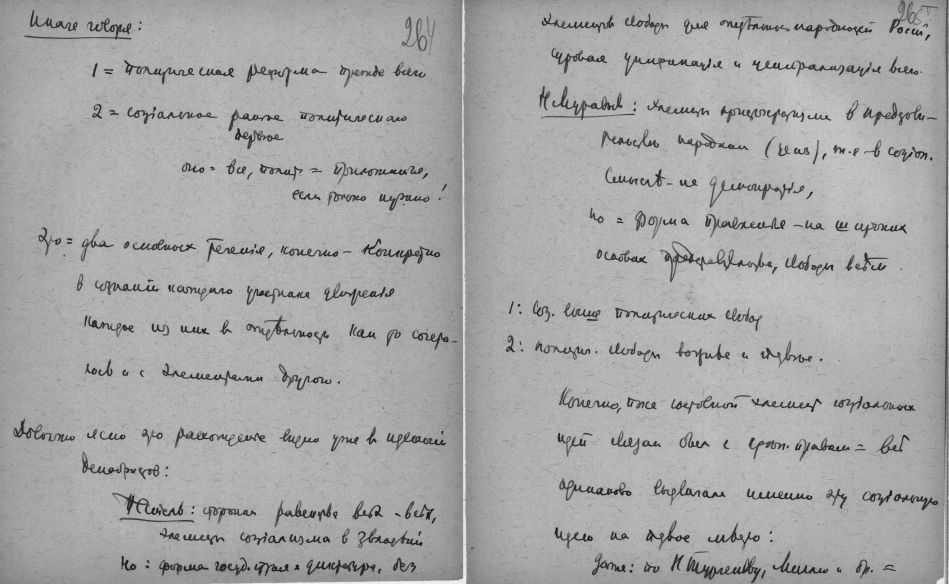 264
Иначе говоря:
1 = политическая реформа прежде всего
2 = социальное ранее политического
первое
оно = все, полит = приложится,
если только нужно!
Это = два основных течения, конечно – конкретно
в сознании каждого участника движения
каждое из них в отдельности как то сочета-
лось и с элементами другого.
Довольно ясно это расхождение видно уже в идеологии
декабристов:
Пестель: сторонник равенства всех – всем,
элемент социализма в
Но: форма госуд. строя = диктатура, без
265
элементов свободы для народностей России,
суровая унификация и централизация всего.
Н Муравьев: элемент аристократизма в представи-
тельстве народном (ценз), т.е – в социал.
смысле – не демократия,
но = форма правления – на широких
основах представительства, свободы всем.
1: Соц. выше политических свобод
2: политич. свободы важнее и первое.
Конечно, тоже составной элемент социальных
идей связан был с крест. правами = все
одинаково выдвигали именно эту социальную
идею на первое место:
Даже: по Н Тургеневу, и др. =